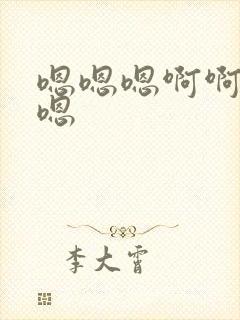 嗯嗯嗯啊啊
嗯
李大霄